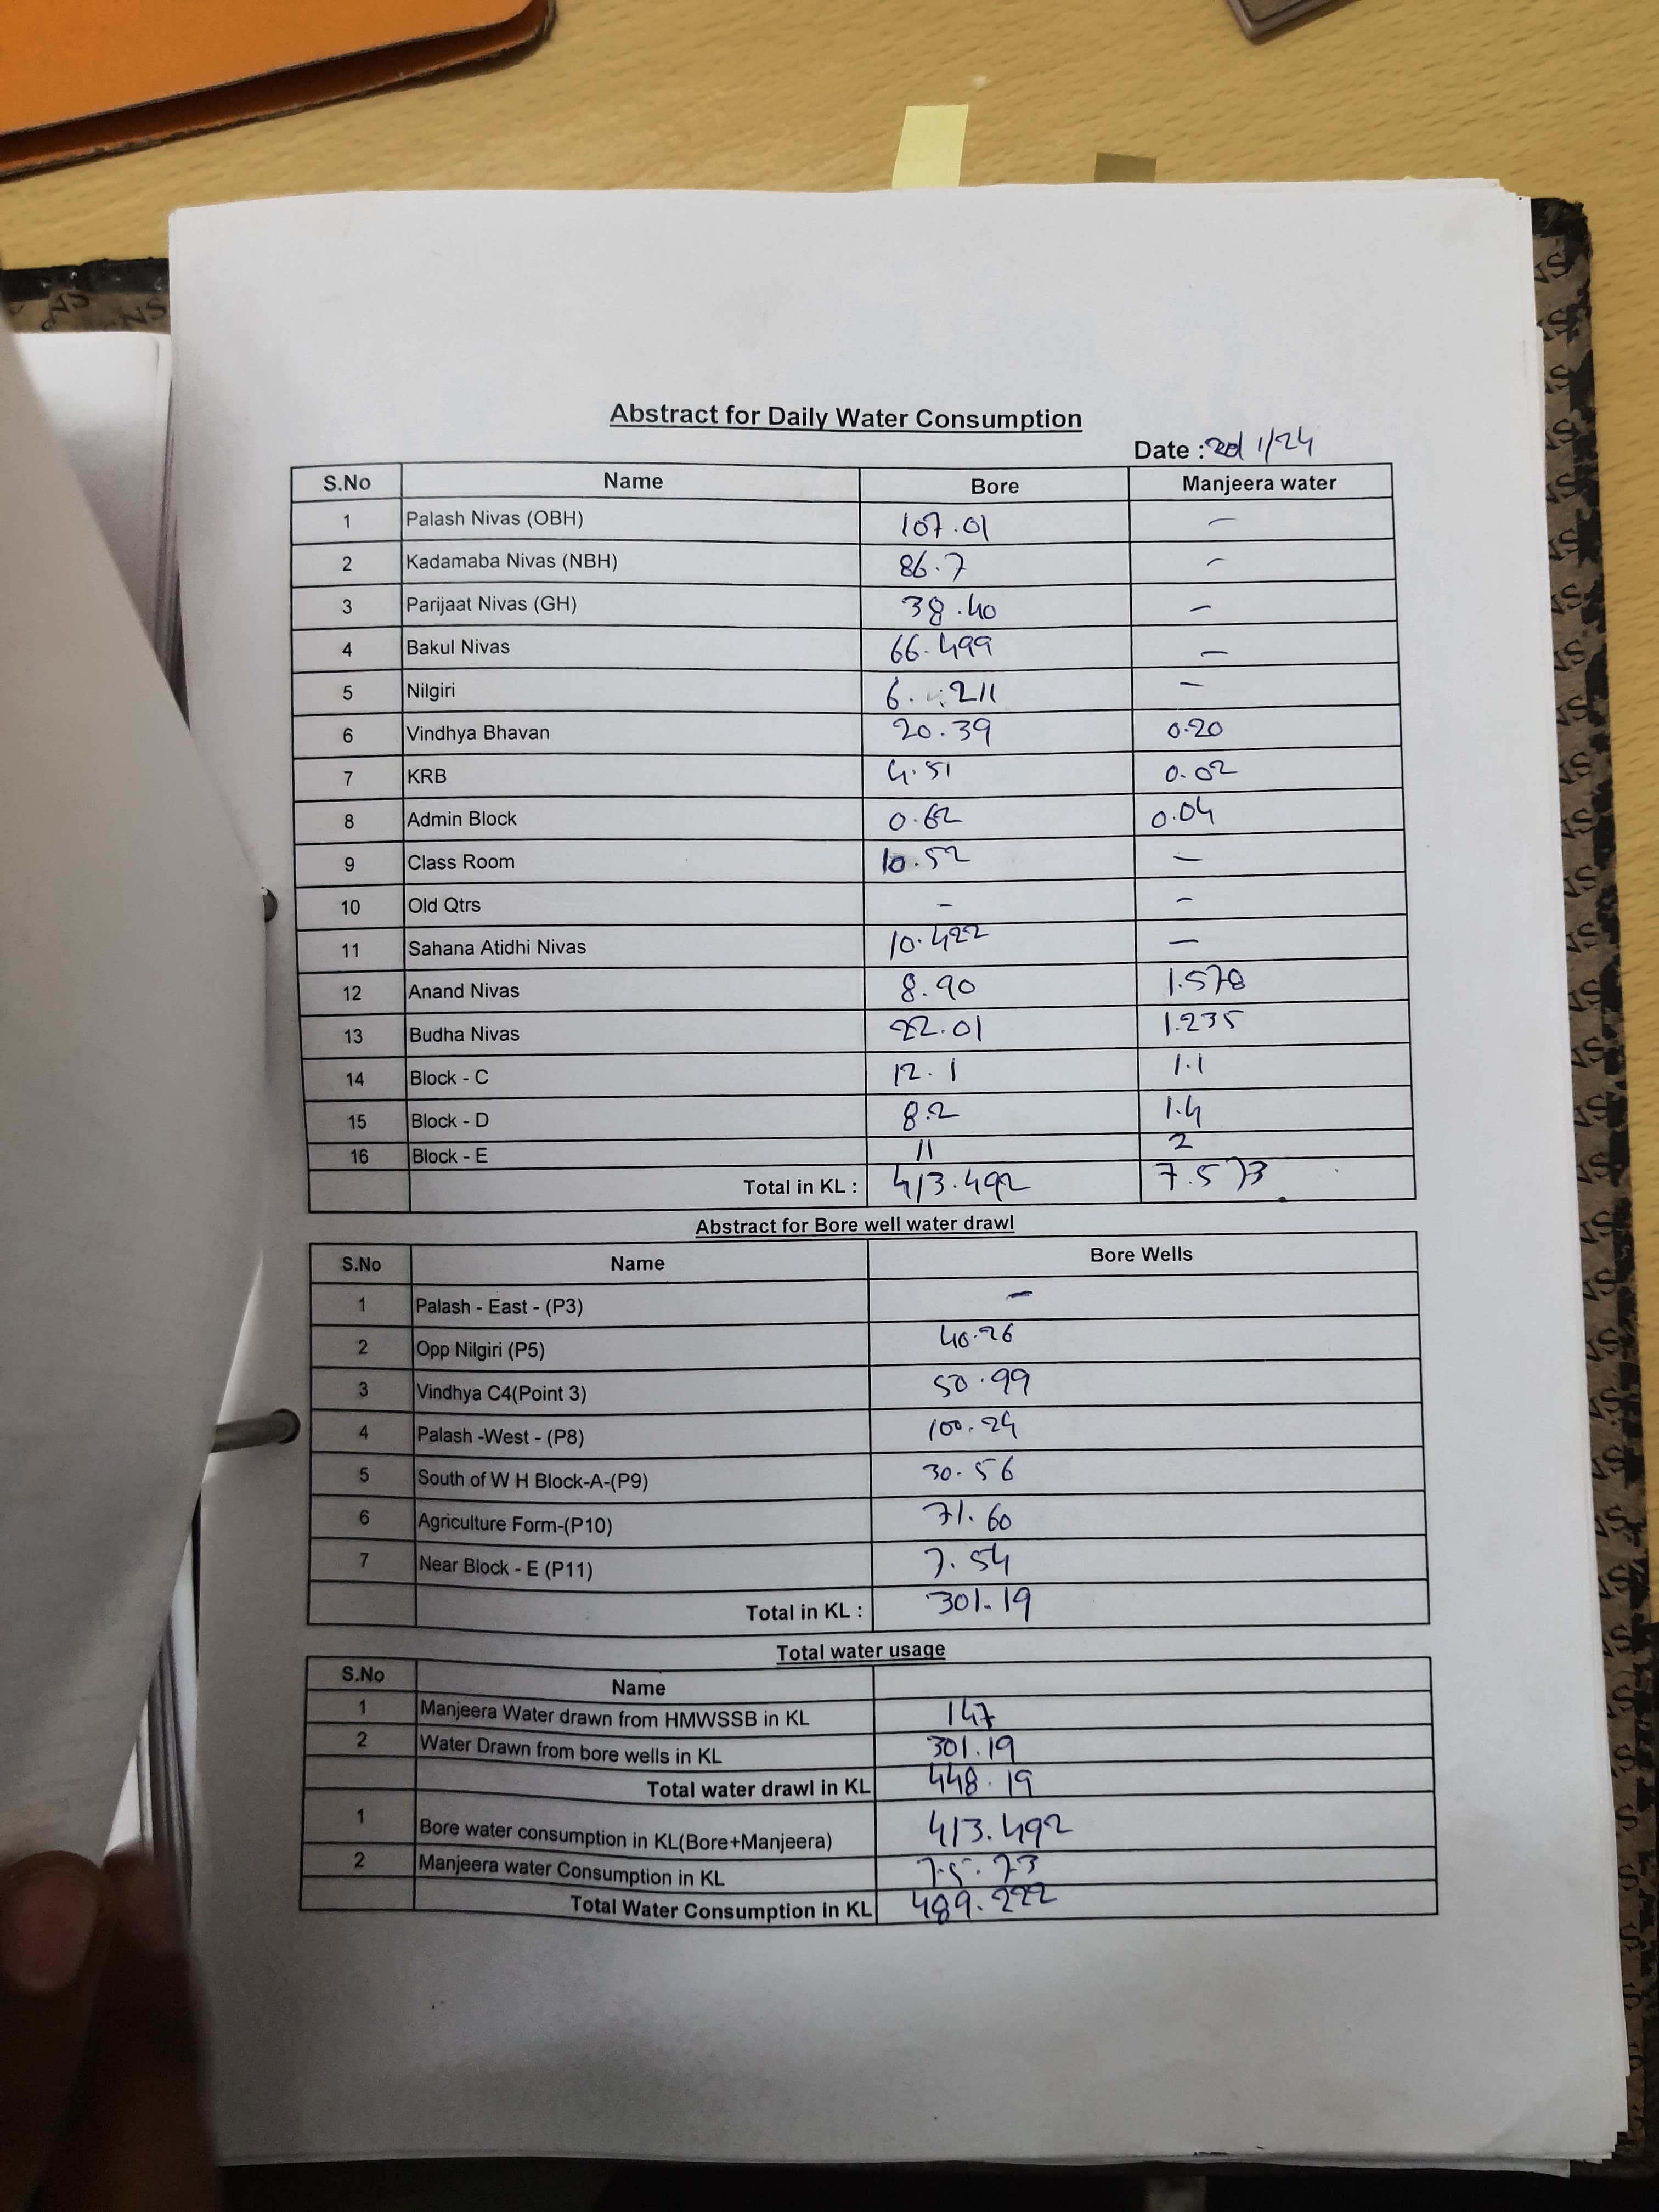 Abstract for Daily Water Consumption
Date : 20/1/24
S.No Name Bore Manjeera water
1 Palash Nivas (OBH) 107.01 -
2 Kadamaba Nivas (NBH) 86.7 -
3 Parijaat Nivas (GH) 38.40 -
4 Bakul Nivas 66.499 -
5 Nilgiri 6.211 -
6 Vindhya Bhavan 20.39 0.20
7 KRB 4.51 0.02
8 Admin Block 0.62 0.04
9 Class Room 10.52 -
10 Old Qtrs - -
11 Sahana Atidhi Nivas 10.422 -
12 Anand Nivas 8.90 1.578
13 Budha Nivas 22.01 1.235
14 Block - C 12.1 1.1
15 Block - D 8.2 1.4
16 Block - E 11 2
Total in KL : 413.492 7.573
Abstract for Bore well water drawl
S.No Name Bore Wells
1 Palash - East - (P3) -
2 Opp Nilgiri (P5) 40.26
3 Vindhya C4(Point 3) 50.99
4 Palash -West - (P8) 100.24
5 South of W H Block-A-(P9) 30.56
6 Agriculture Form-(P10) 71.60
7 Near Block - E (P11) 7.54
Total in KL : 301.19
Total water usage
S.No Name
1 Manjeera Water drawn from HMWSSB in KL 147
2 Water Drawn from bore wells in KL 301.19
Total water drawl in KL 448.19
1 Bore water consumption in KL(Bore+Manjeera) 413.492
2 Manjeera water Consumption in KL 75.73
Total Water Consumption in KL 489.222